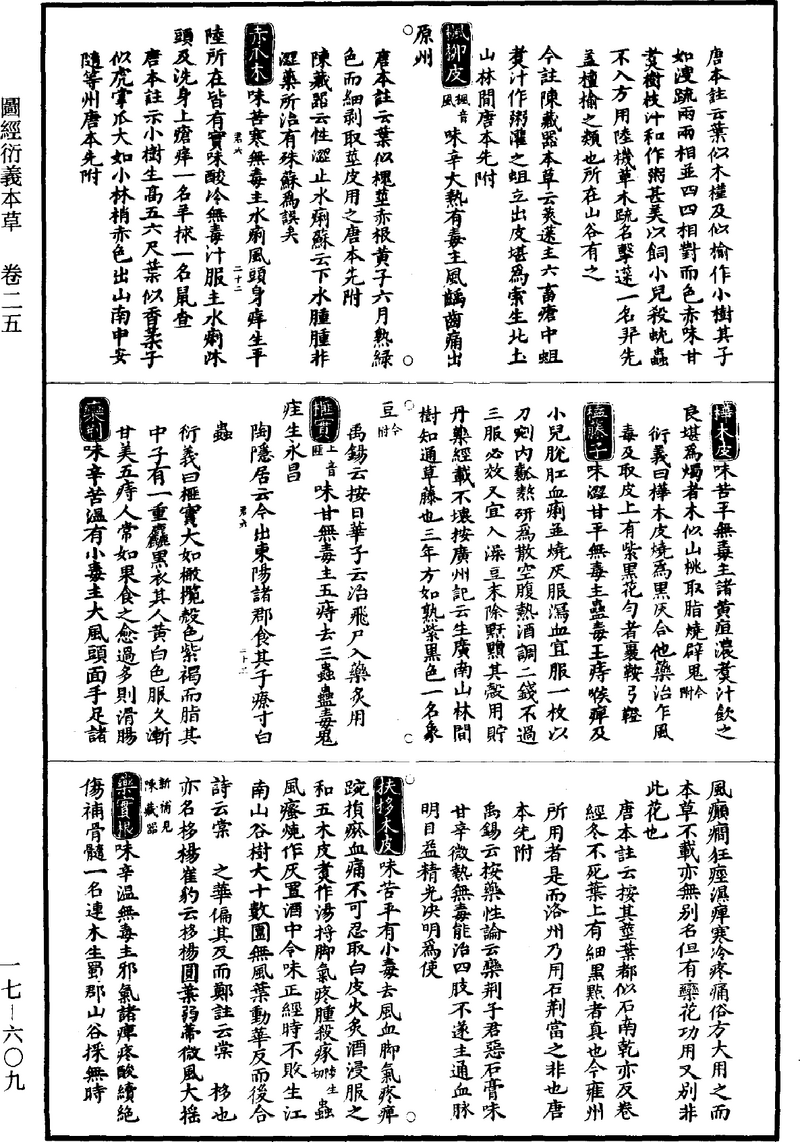 圖經衍義本草　卷二五
唐本註云葉似木槿及似榆作小樹其子
如溲疏兩兩相並四四相對而色赤味甘
煑樹枝汁和作粥甚美以飼小兒殺蚘蟲
不入方用陸機草木疏名擊蒾一名羿先
蓋檀榆之類也所在山谷有之
今註陳藏器本草云莢蒾主六畜瘡中蛆
煑汁作粥灌之蛆立出皮堪爲索生北土
山林間唐本先附
楓柳皮楓音風味辛大熱有毒主風齲齒痛出
原州
唐本註云葉似槐莖赤根黃子六月熟綠
色而細剥取莖皮用之唐本先附
陳藏器云性澀止水痢蘇云下水腫腫非
澀藥所治有殊蘇爲誤矣
赤爪木味苦寒無毒主水痢風頭身痒生平
君六　二十二
陸所在皆有實味酸冷無毒汁服主水痢沐
頭及洗身上瘡痒一名羊梂一名鼠查
唐本註云小樹生高五六尺葉似香葇子
似虎掌爪大如小林檎赤色出山南申安
隨等州唐本先附
樺木皮味苦平無毒主諸黃疸濃煑汁飲之
良堪爲燭者木似山桃取脂燒辟鬼今附
衍義曰樺木皮燒爲黑灰合他藥治乍風
毒及取皮上有紫黑花勻者裹鞍弓鞾
榼藤子味澀甘平無毒主蠱毒五痔喉痺及
小兒脫肛血痢並燒灰服瀉血宜服一枚以
刀剜内瓤熬研爲散空腹熱酒調二錢不過
三服必效又宜入澡豆末除䵟黯其殼用貯
丹藥經載不壞按廣州記云生廣南山林間
樹如通草藤也三年方如熟紫黑色一名象
豆今附
禹錫云按日華子云治飛尸入藥炙用
榧實上音匪味甘無毒主五痔去三蟲蠱毒鬼
疰生永昌
陶隱居云今出東陽諸郡食其子療寸白
君六　二十二
蟲
衍義曰榧實大如橄欖殼色紫褐而脂其
中子有一重麤黑衣其人黃白色服久漸
甘美五痔人常如果食之愈過多則滑腸
欒荆味辛苦溫有小毒主大風頭面手足諸
風癲癇狂痙濕痺寒冷疼痛俗方大用之而
本草不載亦無别名但有欒花功用又别非
此花也
唐本註云按其莖葉都似石南乾亦反卷
經冬不死葉上有細黑點者真也今雍州
所用者是而洛州乃用石荆當之非也唐
本先附
禹錫云按藥性論云欒荆子君惡石膏味
甘辛微熱無毒能治四肢不遂主通血脉
明目益精光决明爲使
扶栘木皮味苦平有小毒去風血脚氣疼痺
踠損瘀血痛不可忍取白皮火炙酒浸服之
和五木皮煑作湯捋脚氣疼腫殺瘃蟲
風瘙燒作灰置酒中令味正經時不敗生江
南山谷樹大十數圍無風葉動華反而後合
詩云棠　之華偏其反而鄭註云棠　栘也
亦名栘楊崔豹云栘楊圓葉弱蒂微風大搖
新補見陳藏器
藥實根味辛溫無毒主邪氣諸痺疼酸續絶
傷補骨髓一名連木生蜀郡山谷採無時
一七—六〇九